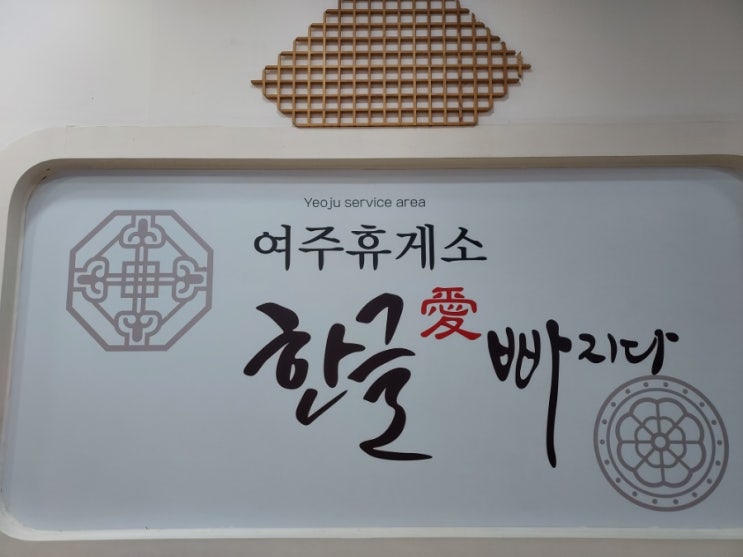 Yeoju service area
여주휴게소
한글愛 빠지다